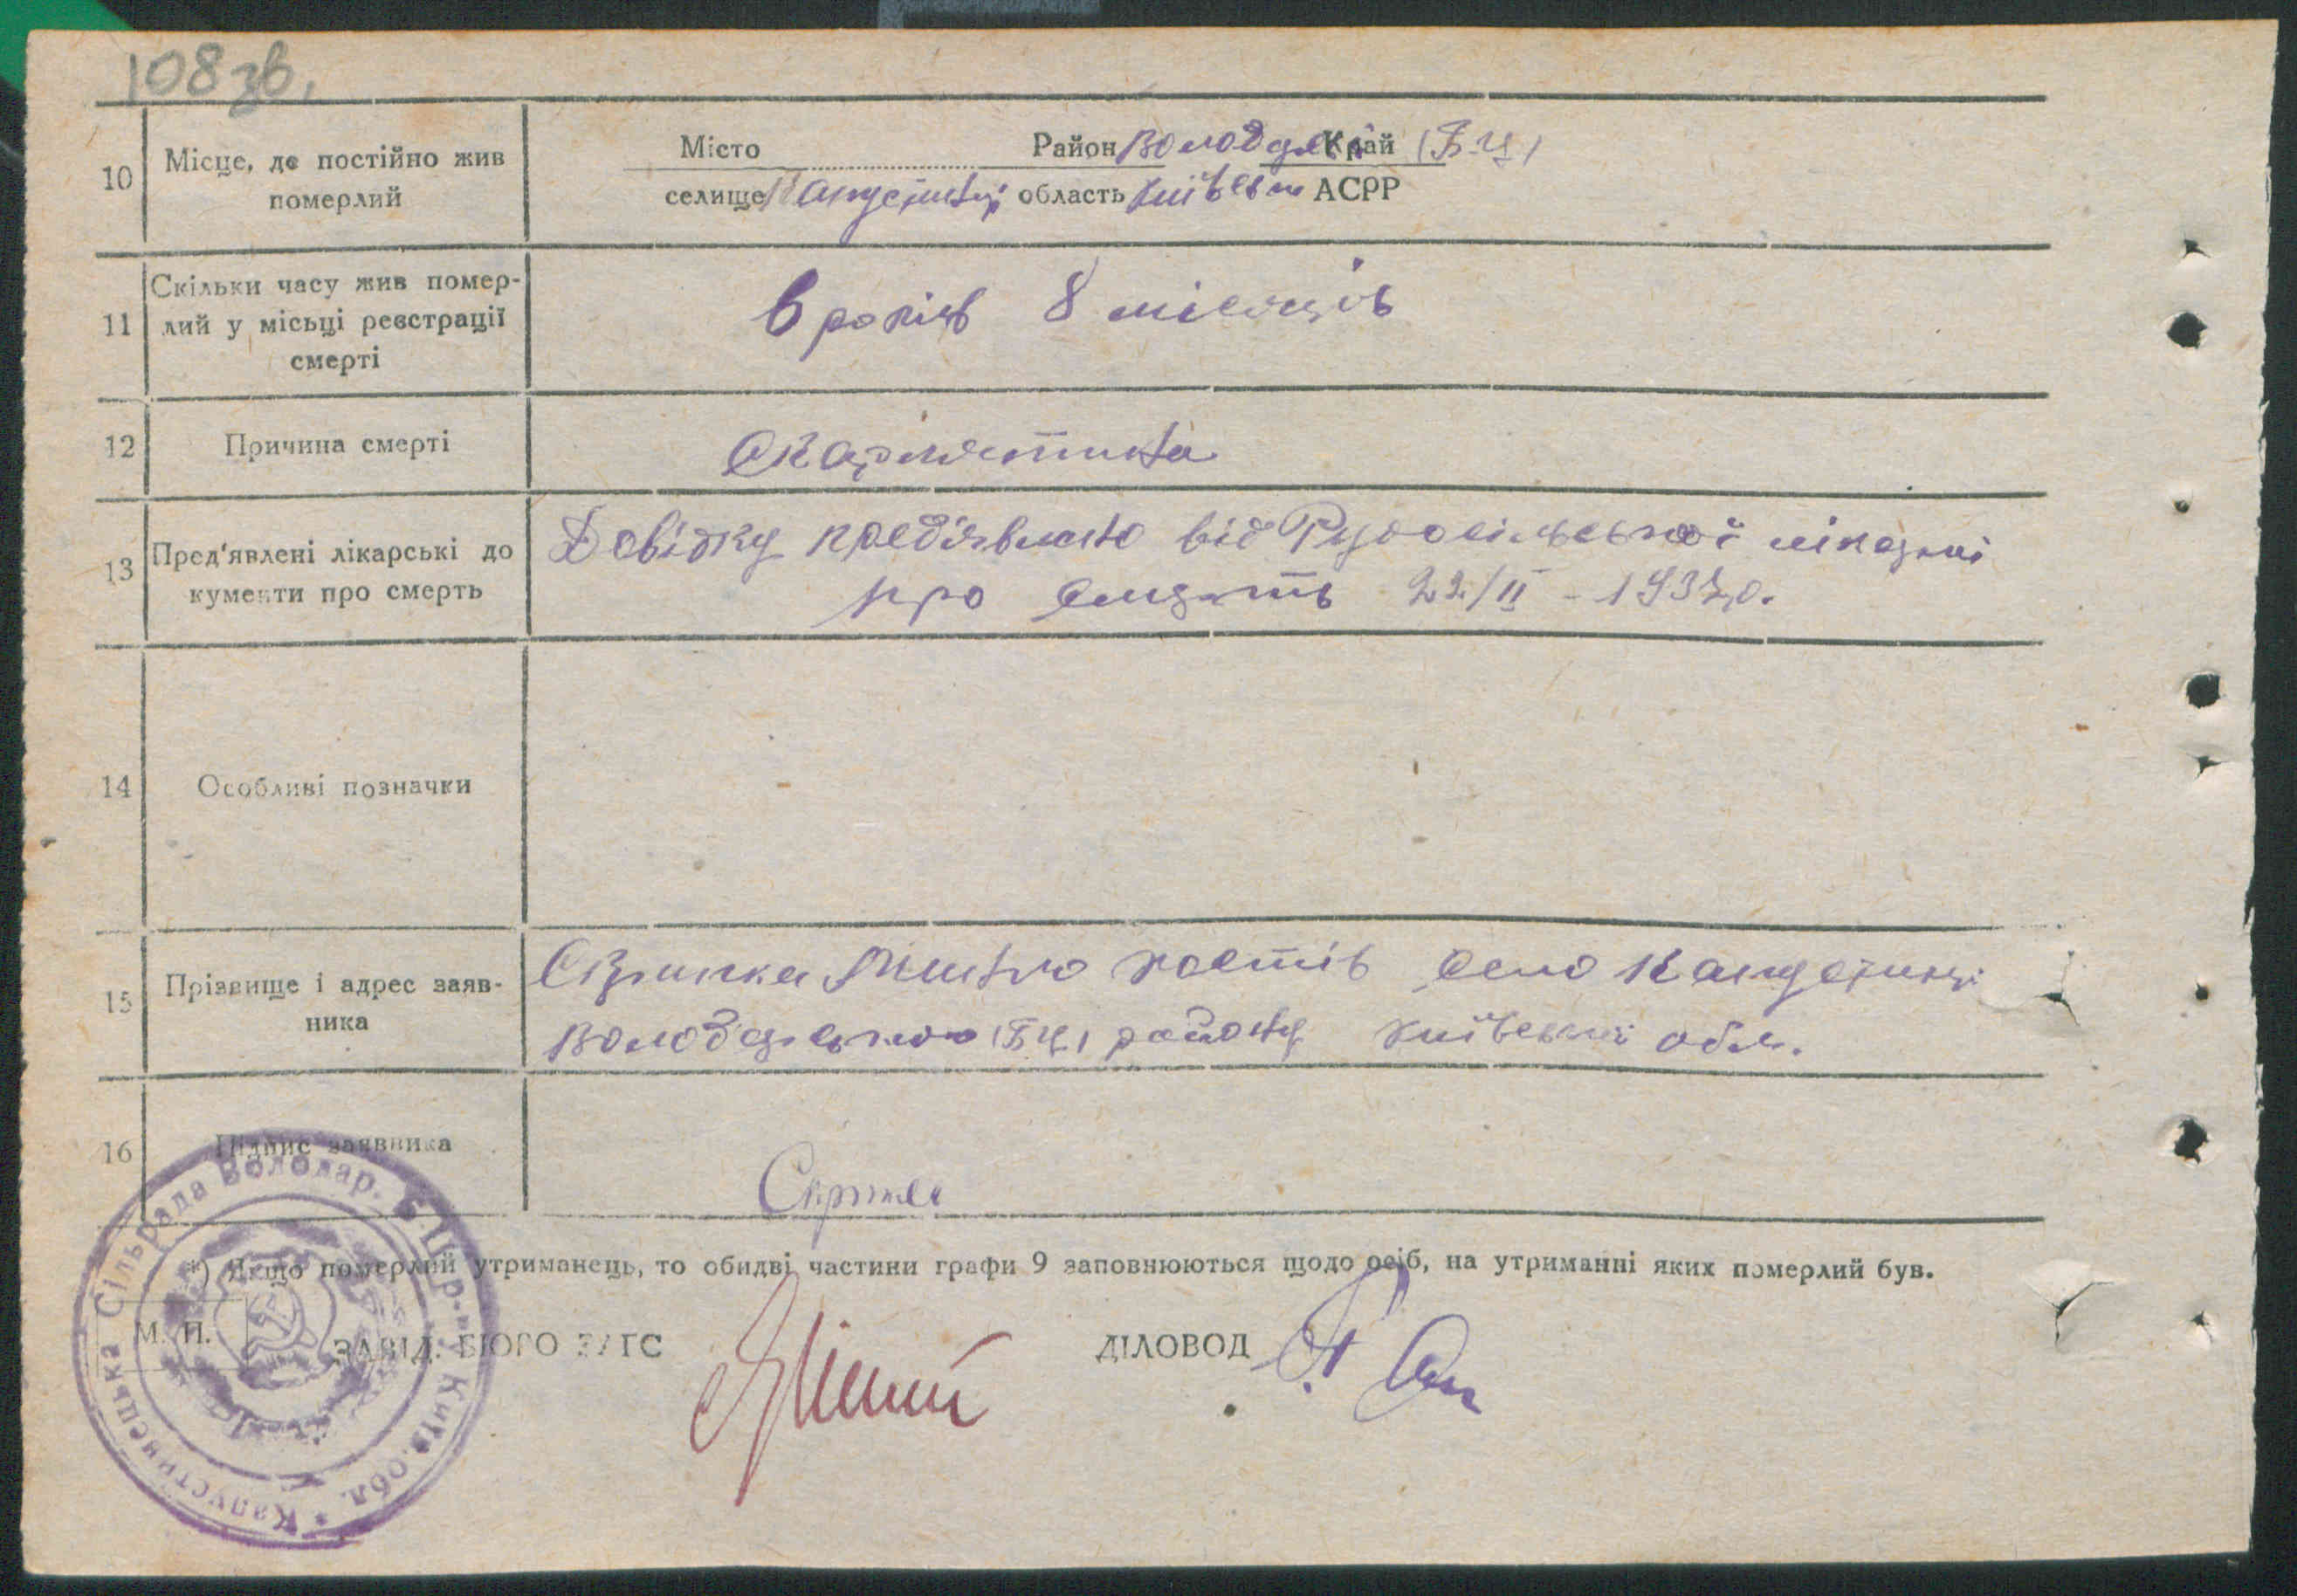 108 зв.
10 Місце, де постійно жив померлий
Місто Район Володарськ Край (Б-Ц)
селище Капустинці область Київськ АСРР
11 Скільки часу жив помер-
лий у місьці реєстрації
смерті
6 років 8 місяців
12 Причина смерті
Скарлятина
13 Пред'явлені лікарські до
кументи про смерть
Довідку пред'явлено від Рудосільської лікарні
про смерть 22/II - 1937 р.
14 Особливі позначки
15 Прізвище і адрес заяв-
ника
село Капустинці
Володарського (БЦ) району Київської обл.
16 Підпис заявника
*) Якщо померлий утриманець, то обидві частини графи 9 заповнюються щодо осіб, на утриманні яких померлий був.
М. П.
ЗАВІД. БЮРО ЗАГС
ДІЛОВОД
Капустинецька Сільрада Володар. Б.Цер. р. Київ. обл.